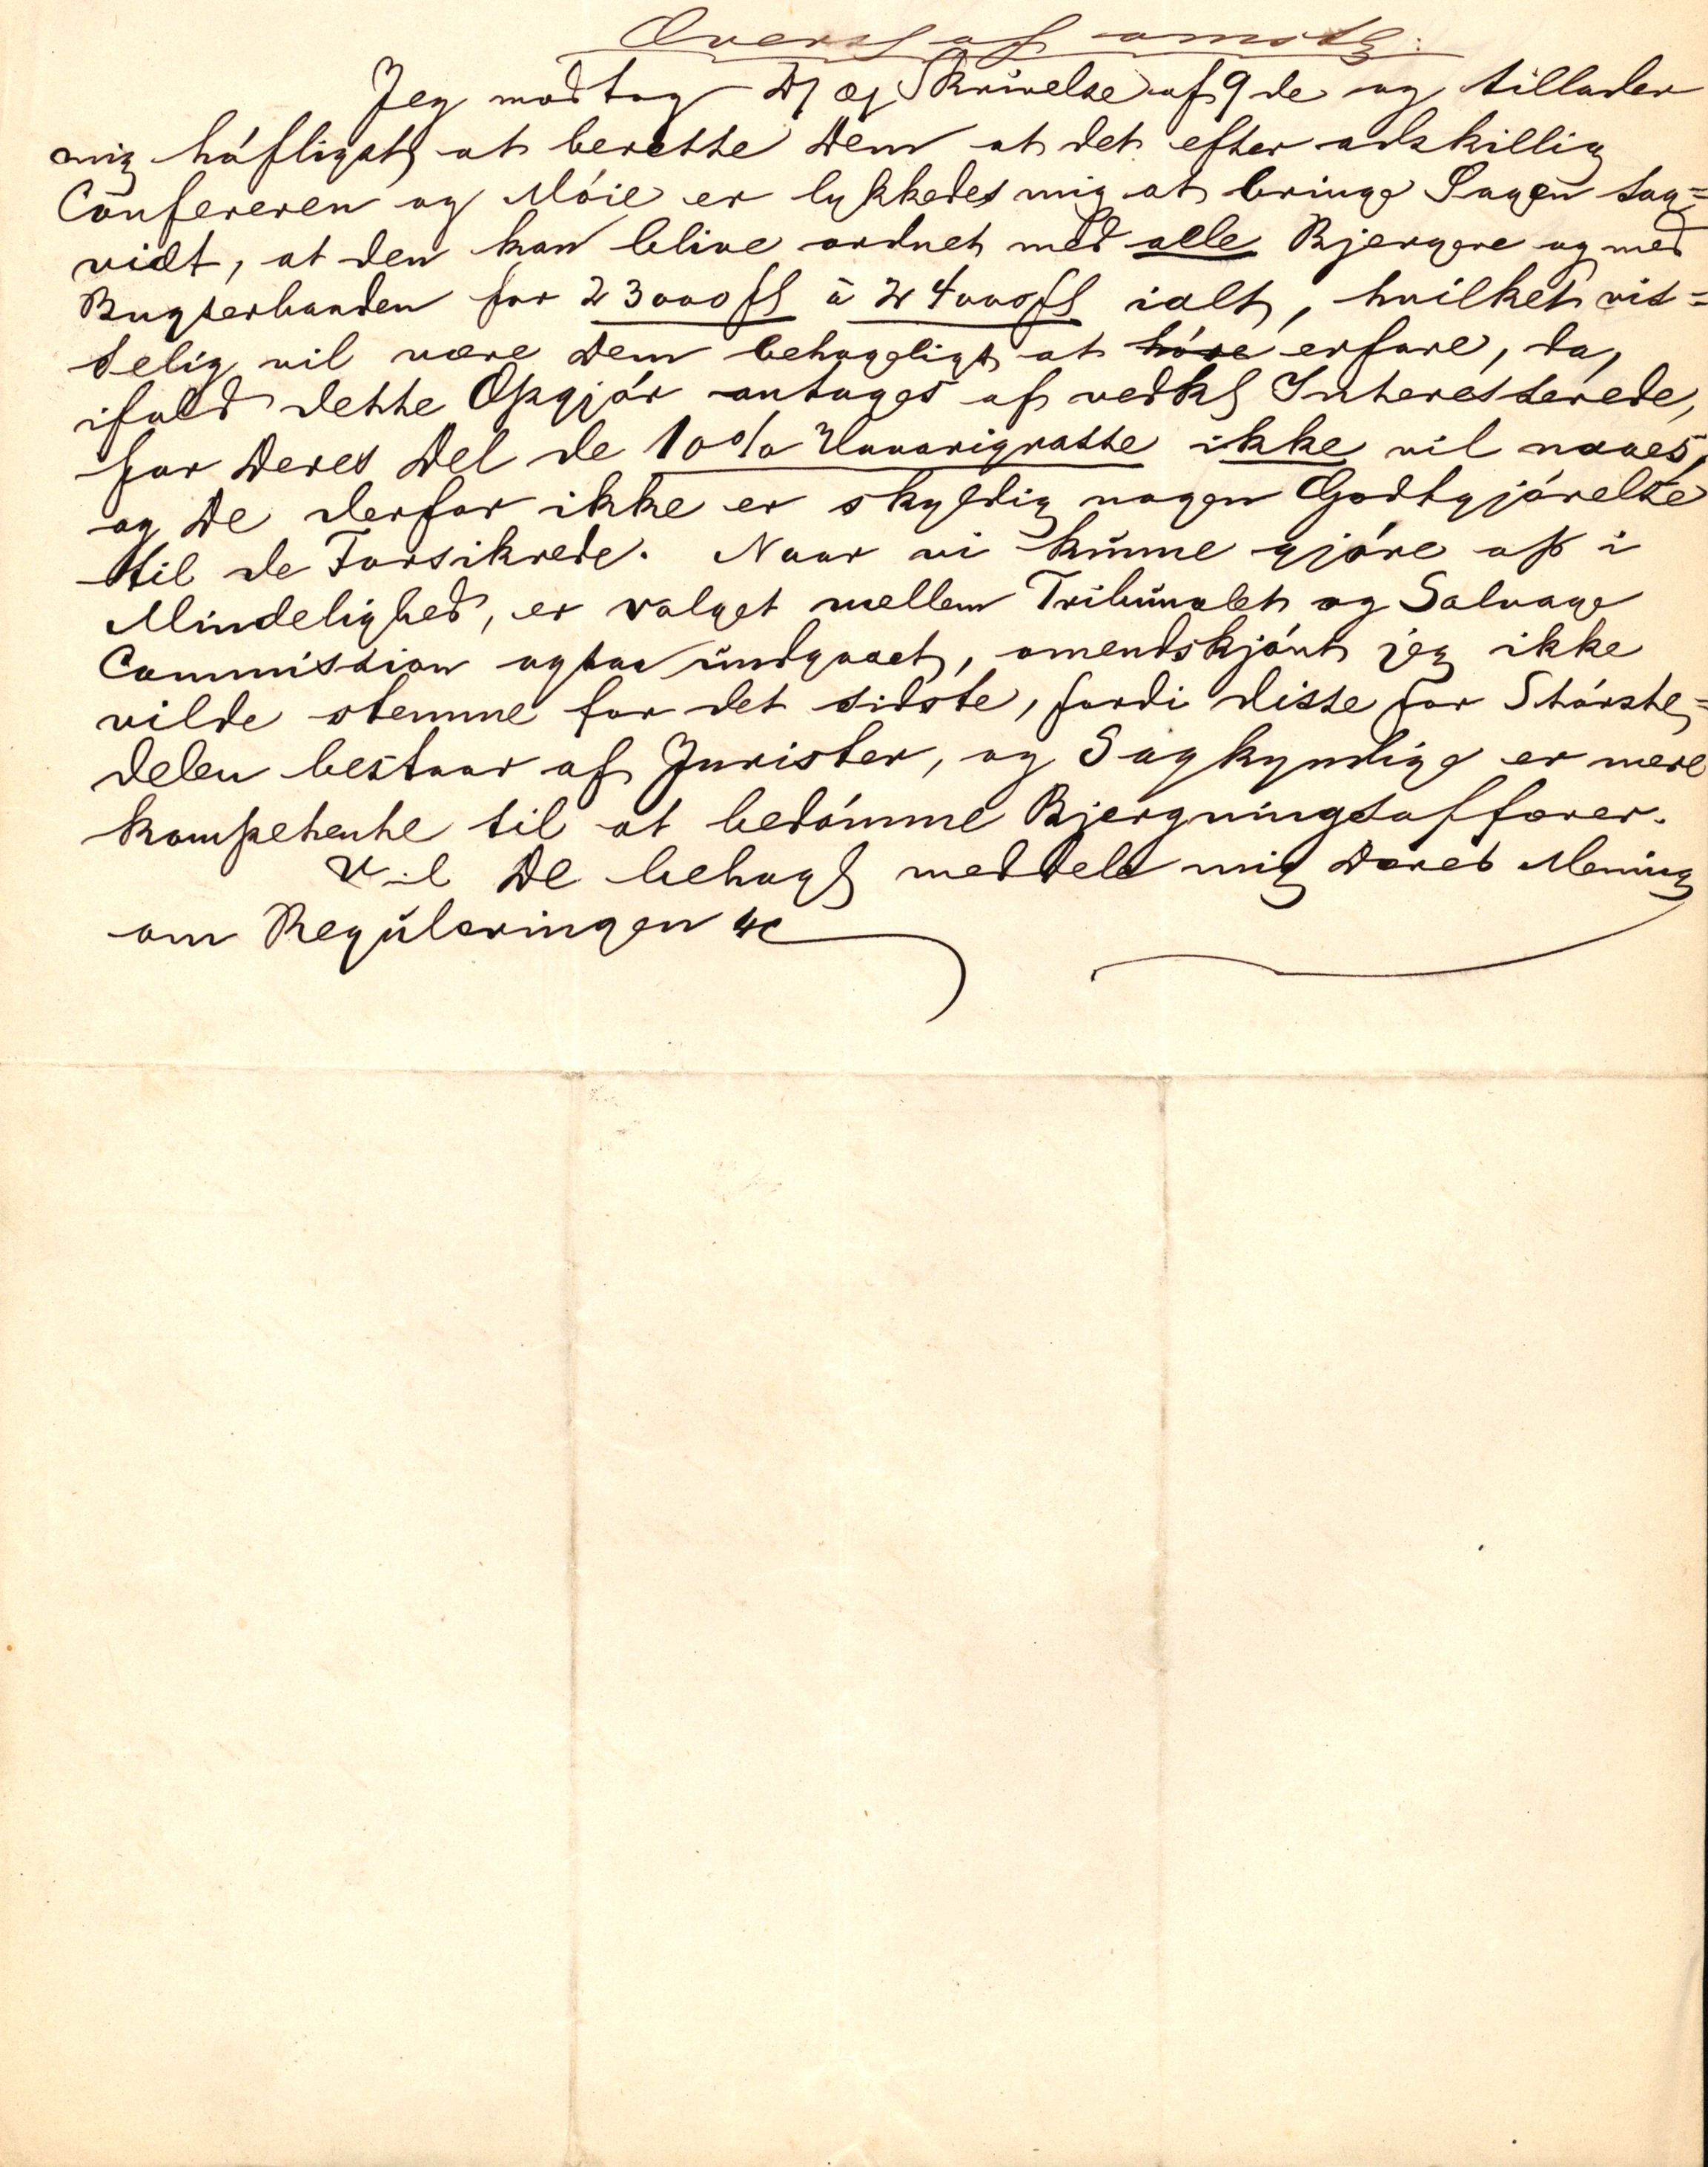 Overs af omstg:
Jeg modtog Dj æj Skrivelse af 9de og tillader
mig höfligst at berette Dem at det efter adskillig
Confereren og Möie er lykkedes mig at bringe Sagen saa=
vidt, at den kan blive ordnet med alle Bjergere og med
Bugserbaaden for 23000 fl à 24000 fl ialt, hvilket vis=
selig vil være Dem behageligt at höre erfare, da,
ifald dette Opgjör antages af vedk Interesserede,
for Deres Del de 10 % Havarigrosse ikke vil naaes,
og De derfor ikke er skyldig nogen Godtgjörelse
til de Forsikrede. Naar vi kunne gjöre op i
Mindelighed, er valget mellem Tribunalet og Salvage
Commission ogsaa undgaaet, omendskjönt jeg ikke
vilde stemme for det sidste, fordi disse for Störste=
delen bestaar af Jurister, og Sagkyndige er mere
kompetente til at bedömme Bjergningsaffærer.
Vil De behagl meddele mig Deres Mening
om Reguleringen &c